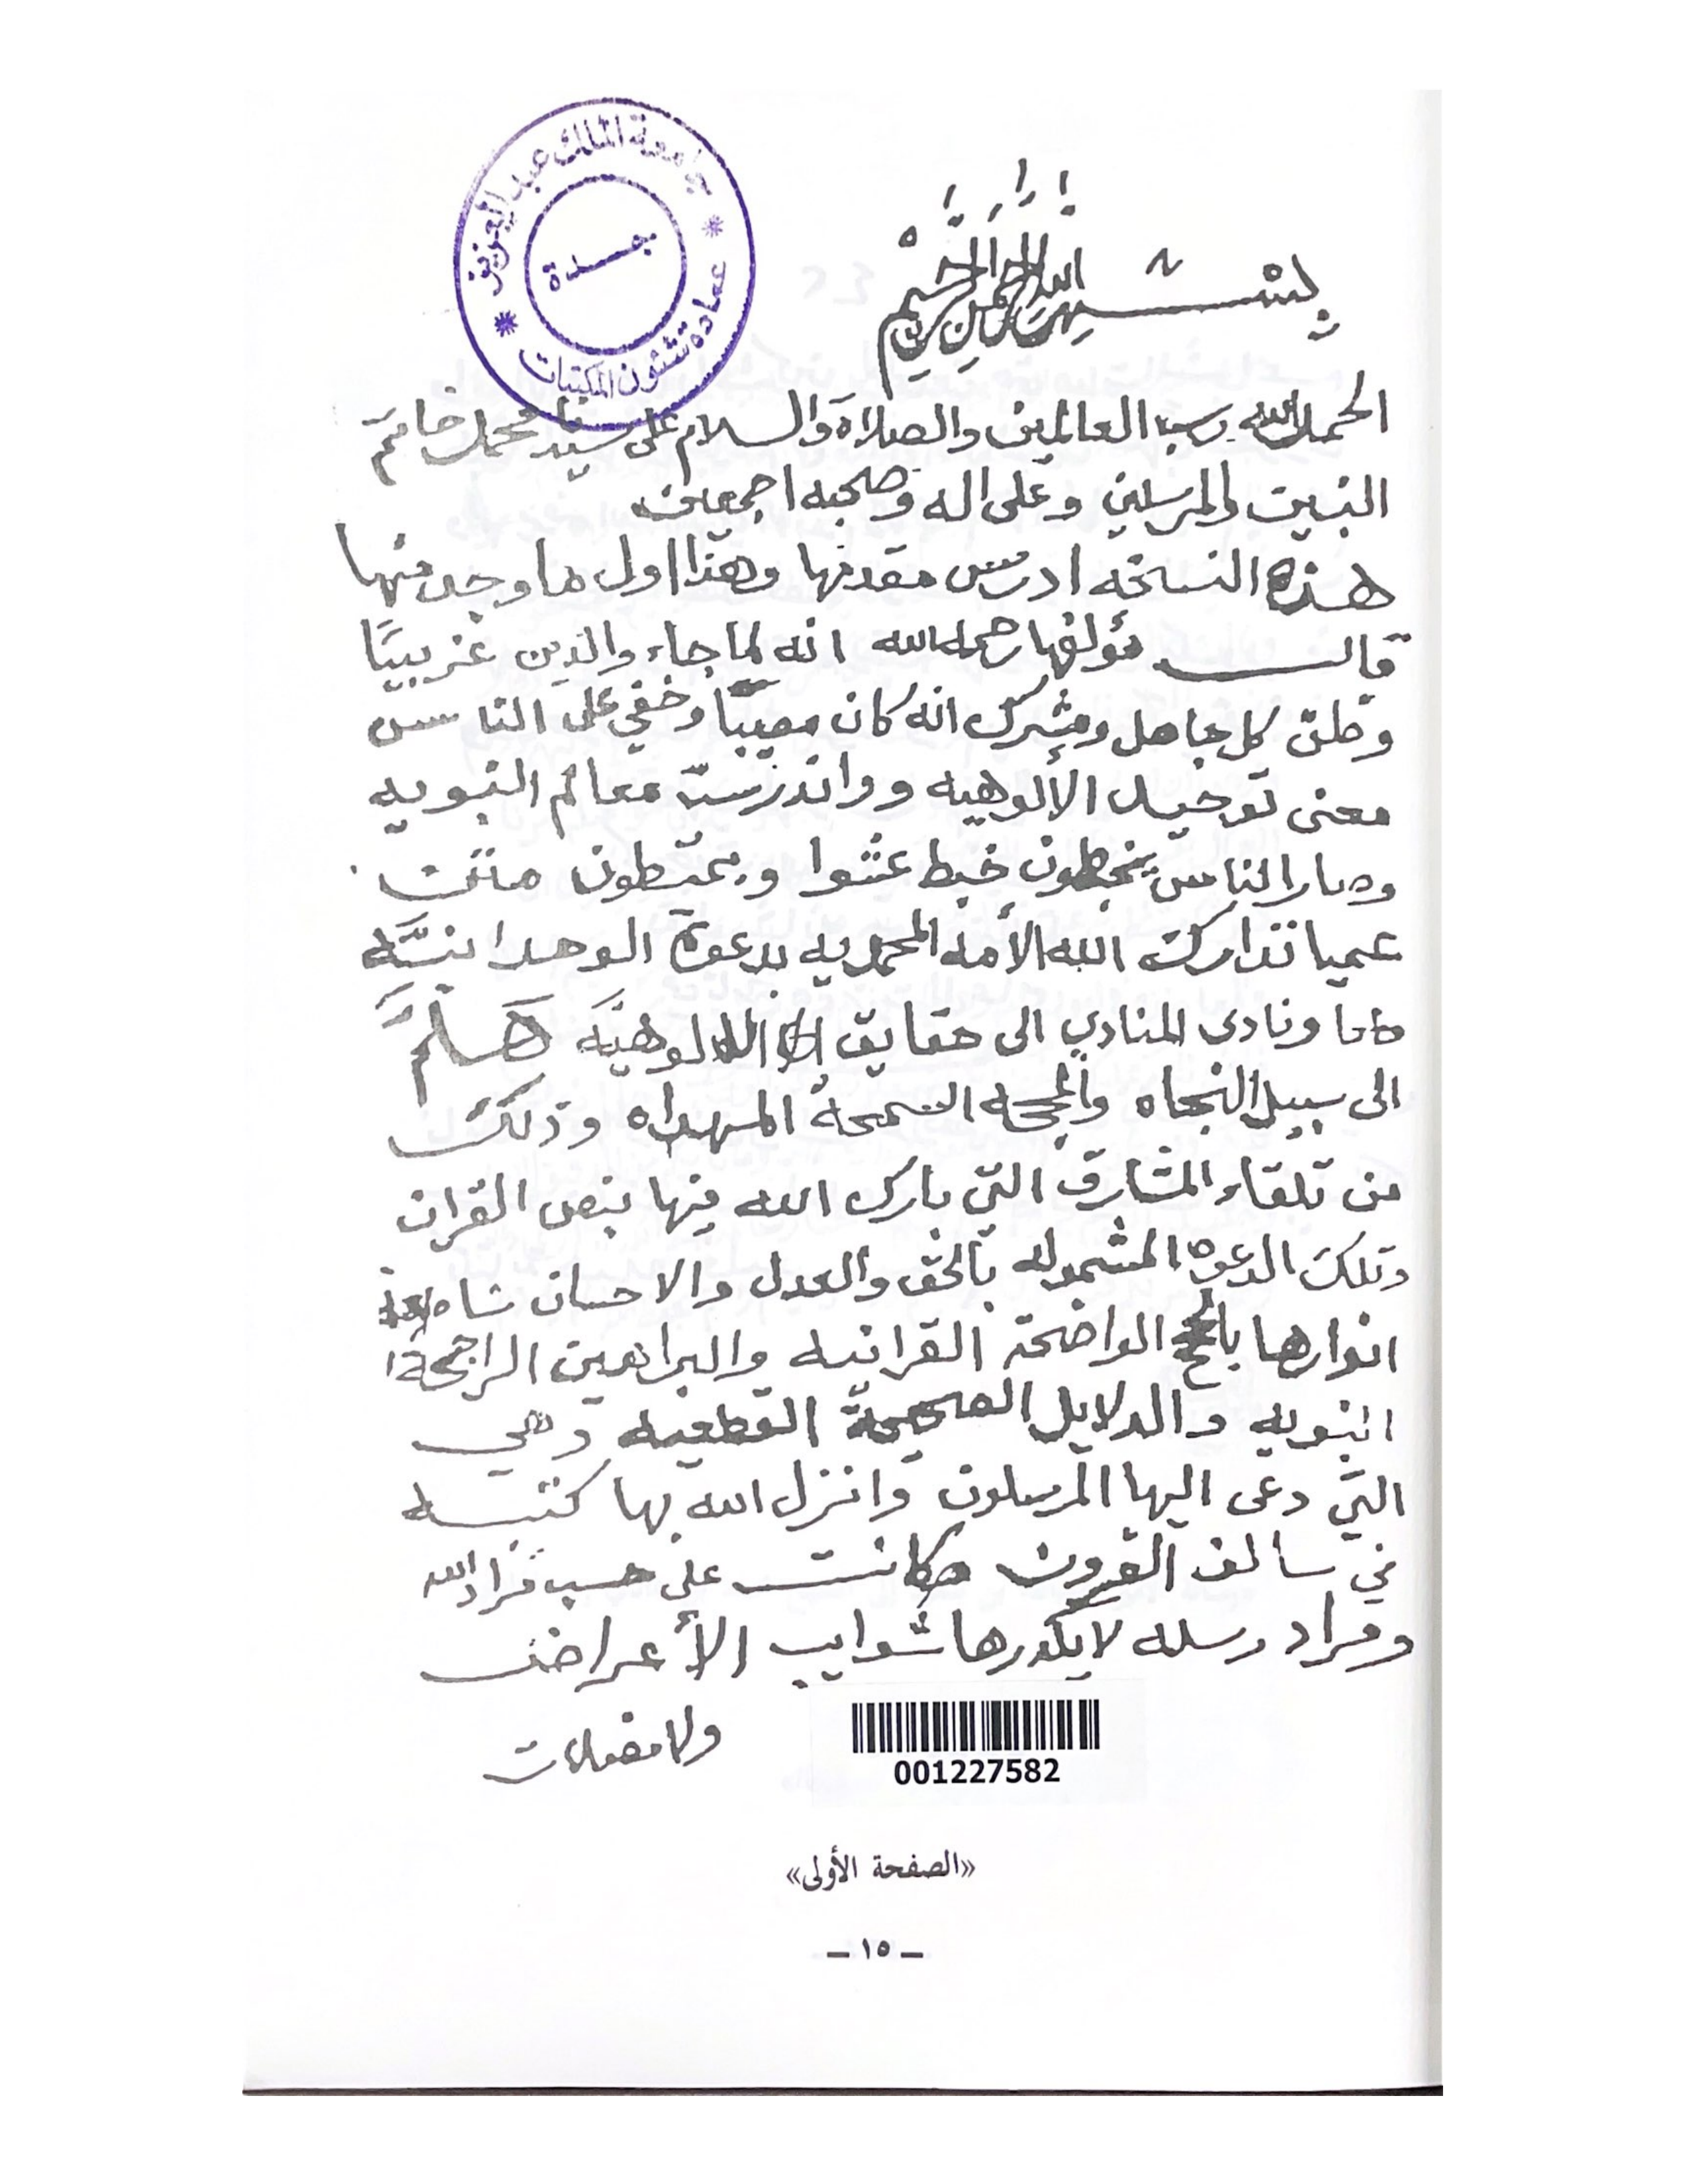 جامعة الملك عبد العزيز
جدة
عمادة شئون المكتبات
بسم الله الرحمن الرحيم
الحمد لله رب العالمين والصلاة والسلام على سيدنا محمد خاتم
النبين والمرسلين وعلى اله وصحبه اجمعين
هذه النسخه ادرس مقدمتها وهذا اول ما وجد منها
قال مؤلفها رحمه الله انه لما جاء والدين غريبيًا
وظن كل جاهل ومشرك انه كان معيبًا وخفي على الناس
معنى توحيد الألوهيه وواندرست معالم النبويه
وصار الناس يخبطون خبط عشوا ويمتطون متن
عميا تدارك الله الأمه المحمديه بدعوة الوحدانيَّه
ونادى المنادي الى حقايق الالوهيَّه هَلُمَّ
الى سبيل النجاه والمحجه السمحة المهداه وذلك
من تلقاء المشارق التي بارك الله فيها بنص القران
وتلك الدعوه المشموله بالحق والعدل والاحسان
انوارها بالحجج الواضحة القرانيه والبراهين الراجحة
النبويه والدلايل الصحيحة القطعيه وهي
التي دعى اليها المرسلون وانزل الله بها كتبه
في سالف القرون فكانت على حسب مراد الله
ومراد رسله لا يكدرها شوايب الأعراض
ولا مضلات
001227582
«الصفحة الأولى»
– ١٥ –